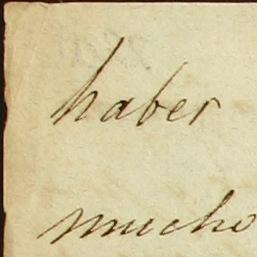 haber
mucho